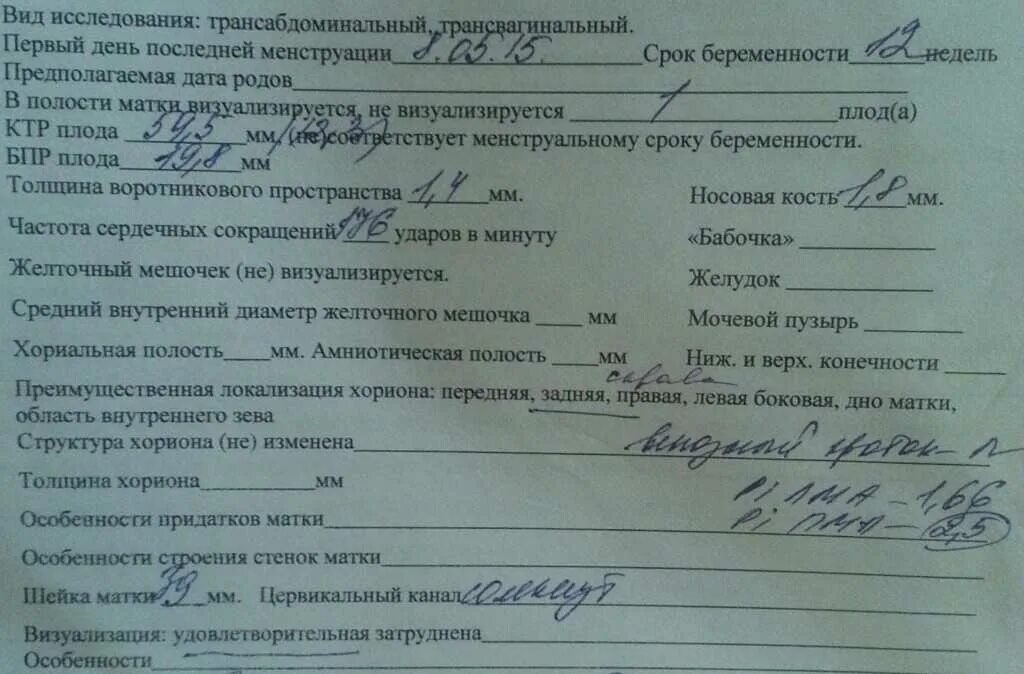 Вид исследования: трансабдоминальный, трансвагинальный.
Первый день последней менструации 8.05.15. Срок беременности 12 недель
Предполагаемая дата родов
В полости матки визуализируется, не визуализируется 1 плод(а)
КТР плода 59,5 мм, (не)соответствует менструальному сроку беременности.
БПР плода 19,8 мм
Толщина воротникового пространства 1,4 мм. Носовая кость 1,8 мм.
Частота сердечных сокращений 176 ударов в минуту «Бабочка»
Желточный мешочек (не) визуализируется. Желудок
Средний внутренний диаметр желточного мешочка мм Мочевой пузырь
Хориальная полость мм. Амниотическая полость мм Ниж. и верх. конечности
справа
Преимущественная локализация хориона: передняя, задняя, правая, левая боковая, дно матки,
область внутреннего зева
Структура хориона (не) изменена венозный проток - N
Толщина хориона мм Pi ЛМА - 1,66
Особенности придатков матки Pi ПМА - 2,5
Особенности строения стенок матки
Шейка матки 39 мм. Цервикальный канал сомкнут
Визуализация: удовлетворительная затруднена
Особенности